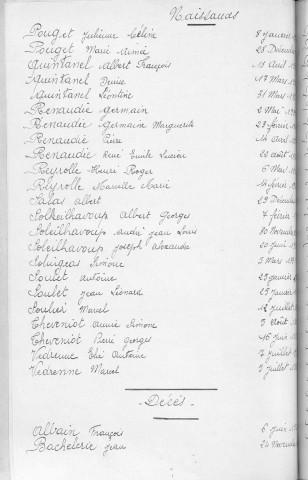 Naissances
Pouget Julienne Céline 8 janvier
Pouget Marie Aimée 28 Décem
Quintanel Albert François 18 Avril
Quintanel Denise 17 Mars
Quintanel Léontine 31 Mars
Renaudie Germain 2 Mai
Renaudie Germaine Marguerite 23 février
Renaudie Pierre 14 Avril
Renaudie René Emile Lucien 22 août
Reyrolle Henri Roger 6 Mai
Reyrolle Marcelle Marie 14 février
Salas Albert 29 Décem
Solheilhavoup Albert Georges 7 février
Soleilhavoup André Jean Louis 30 Novem
Soleilhavoup Joseph Alexandre 20 juin
Soluigeas Simone 3 Mars
Soulet Antoine 23 janvier
Soulet Jean Léonard 25 janvier
Soulier Marcel 12 juillet
Cheyniot Annie Simone 3 août
Cheyniot Pierre Georges 16 juin
Vedrenne Elie Antoine 7 juillet
Vedrenne Marcel 3 juillet
Décès
Albain François 6 juin
Bachelerie Jean 24 Novem